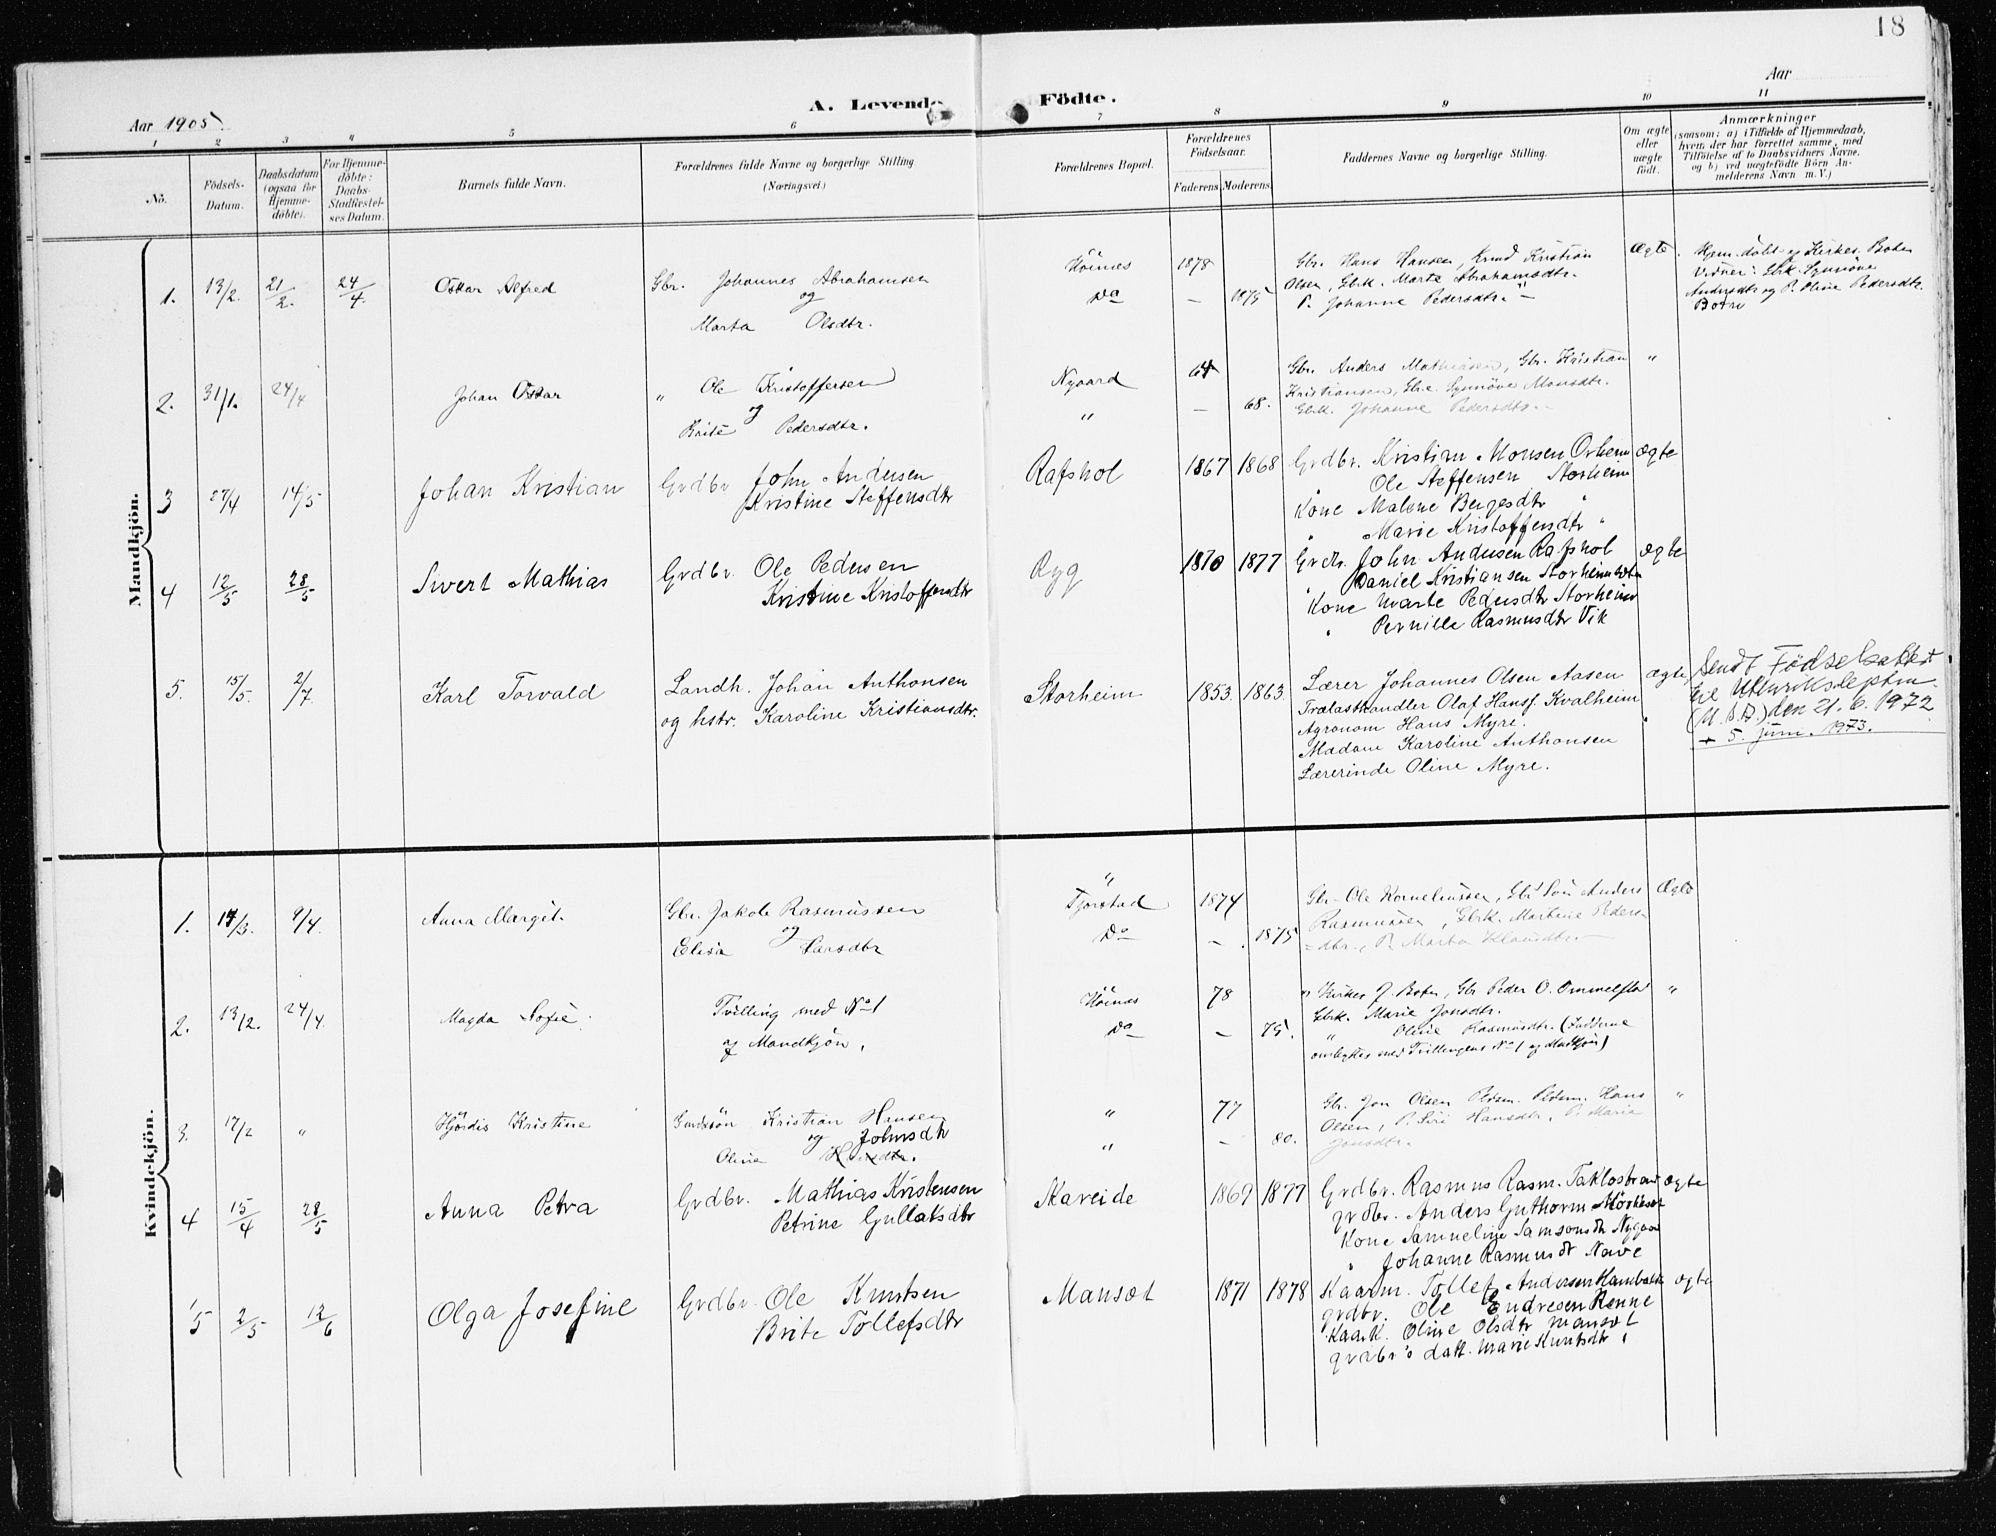 18
Aar 1905.
A. Levende Födte.
Aar
1 2 3 4 5 6 7 8 9 10 11
No.
Födsels-Datum.
Daabsdatum (ogsaa for Hjemme-döbte).
For Hjemme-döbte: Daabs-Stadfæstel-ses Datum.
Barnets fulde Navn.
Forældrenes fulde Navne og borgerlige Stilling (Næringsvei.)
Forældrenes Bopæl.
Forældrenes Födselsaar.
Faderens. Moderens.
Faddernes Navne og borgerlige Stilling.
Om ægte eller uægte födt.
Anmærkninger
(saasom: a) i Tilfælde af Hjemmedaab,
hvem der har forrettet samme, med
Tilföielse af to Daabsvidners Navne.
og b) ved uægtefödte Börn An-
melderens Navn m. V.)
Mandkjön.
1. 13/2. 21/2. 24/4. Oskar Alfred Gbr. Johannes Abrahamsen Höines 1878 Gbr. Hans Hansen, Knud Kristian Ægte.
og Do – 1875 Olsen, Gbrk. Marta Abrahamsdtr.
Marta Olsdtr. P. Johanne Pedersdtr. –
Hjem. döbt af Kirkes. Boten
Vidner: Gbrk. Synnöve
Andersdtr og P. Oline Pedersdtr.
2. 31/1. 24/4 Johan Oskar " Ole Kristoffersen Nygaard 64 Gbr. Anders Mathiasen, Gbr. Kristian "
og " – 68. Kristiansen, Gbrk. Synnöve Monsdtr.
Brite Pedersdtr. Gbrk. Johanne Pedersdtr. –
3 27/4 14/5 Johan Kristian Grdbr John Andersen Rafshol 1867 1868 Grdbr. Kristian Monsen Orheim ægte
Kristine Steffensdtr " Ole Steffensen Storheim
Kone Malene Bergesdtr "
" Marie Kristoffersdtr "
4 12/5 28/5 Sivert Mathias Grdbr. Ole Pedersen Ryg 1870 1877 Grdbr. John Andersen Rafshol ægte
Kristine Kristoffersdtr " Daniel Kristiansen Storheim
Kone Marte Pedersdtr Storheim
" Pernille Rasmusdtr Vik
5. 15/5. 2/7. Karl Torvald Landh. Johan Anthonsen Storheim 1853. 1863. Lærer Johannes Olsen Aasen ægte
og hstr. Karoline Kristiansdtr. Trælasthandler Olaf Hansf. Kvalheim
Agronom Hans Myre.
Madam Karoline Anthonsen
Lærerinde Oline Myre.
Sendt Födselsattest
til Utenriksdeptm.
(U.S.A.) den 21. 6. 1972
+ 5. juni. 1973.
Kvindekjön.
1. 14/3. 9/4. Anna Margit Gbr. Jakob Rasmussen Tjörstad 1874 Gbr. Ole Korneliussen, Gbr. Sön Anders Ægte
og Do – 1875 Rasmussen, Gbrk. Martine Peders-
Elisa Larsdtr dtr., P. Marta Klausdtr. –
2. 13/2. 24/4. Magda Sofie. Tvilling med No 1 Höines 78 Kirkes. J. Boten, Gbr Peder O. "
af Mandkjön. Do – 75. Gbrk. Marie Jonsdtr.
" Oline Rasmusdtr. (Fadderne
ombyttes med Tvillingens No 1 af Mandkjön)
3. 17/2 " Hjördis Kristine Gmdssön Kristian Hansen " 77 Gbr. Jon Olsen Hans "
og Johnsdtr " – 80. Olsen, P. Siri Hansdtr. P. Maria
Oline Jonsdtr.
4 15/4 28/5 Anna Petra Grdbr. Mathias Kristensen Skareide 1869 1877 Grdbr. Rasmus Rasm. Taklosbrand ægte
Petrine Gullaksdtr grdbr. Anders Guthorm
Kone Sameline Samsonsdtr Nygaard
" Johanne Rasmusdtr Nave
5 2/5 12/6 Olga Josefine Grdbr. Ole Knutsen Mansæt 1871 1878 Kaarm. Tollef Andersen Hambakk ægte
Brite Tollefsdtr grdbr. Ole Endresen Rønne
Kaark. Oline Olsdtr Mansæt
grdbr's datt. Marie Knutsdtr "